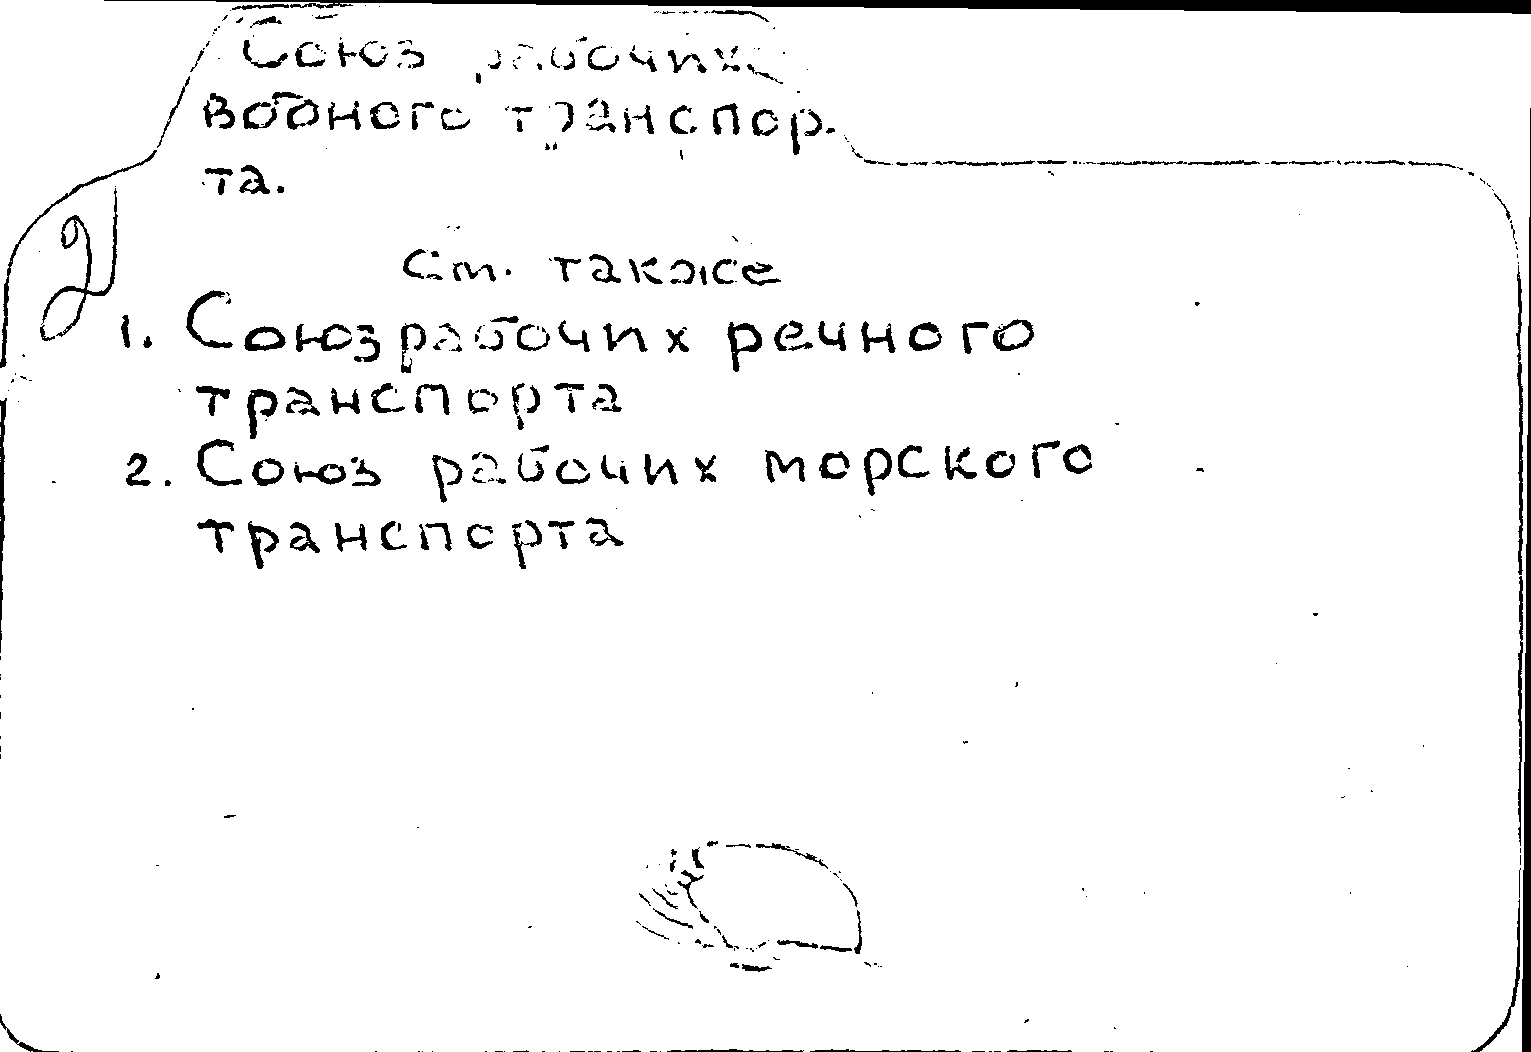 Союз рабочих
водного транспор-
та.
См. также
1. Союз рабочих речного
транспорта
2. Союз рабочих морского
транспорта